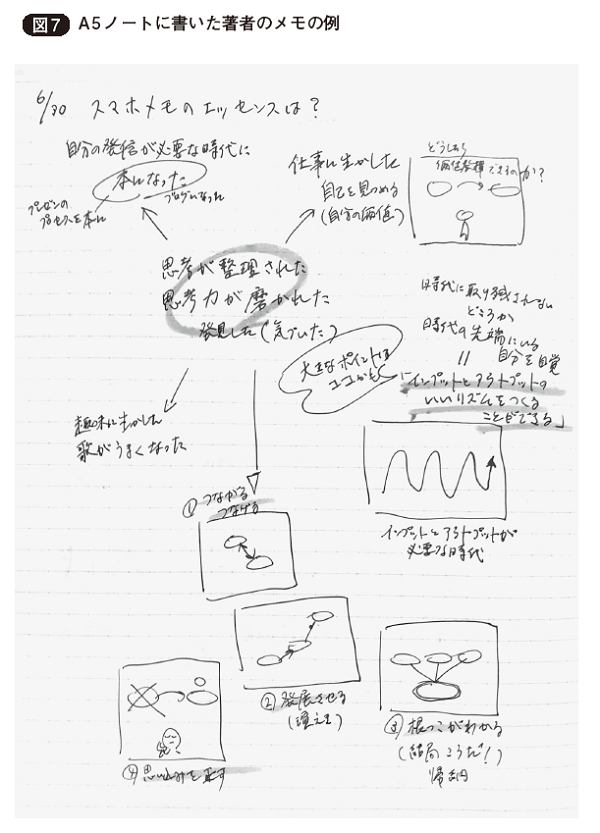 図7 A5ノートに書いた著者のメモの例
6/30 スマホメモのエッセンスは?
自分の発信が必要な時代に
本になった
ブログになった
プレゼンの
プロセスを本に
仕事に生かした
自己を見つめる
(自分の価値)
どうしたら
価値発揮できるのか?
思考が整理された
思考力が磨かれた
発見した(気づいた)
大きなポイントは
ココかも
時代に取り残されない
どころか
時代の先端にいる
自分を自覚
=
「インプットとアウトプットの
いいリズムをつくる
ことができる」
インプットとアウトプットが
必要な時代
趣味に生かした
歌がうまくなった
① つながる
つなげる
② 発展させる
③ 根っこがわかる
(結局こうだ!)
帰納
④ 思い込みを正す